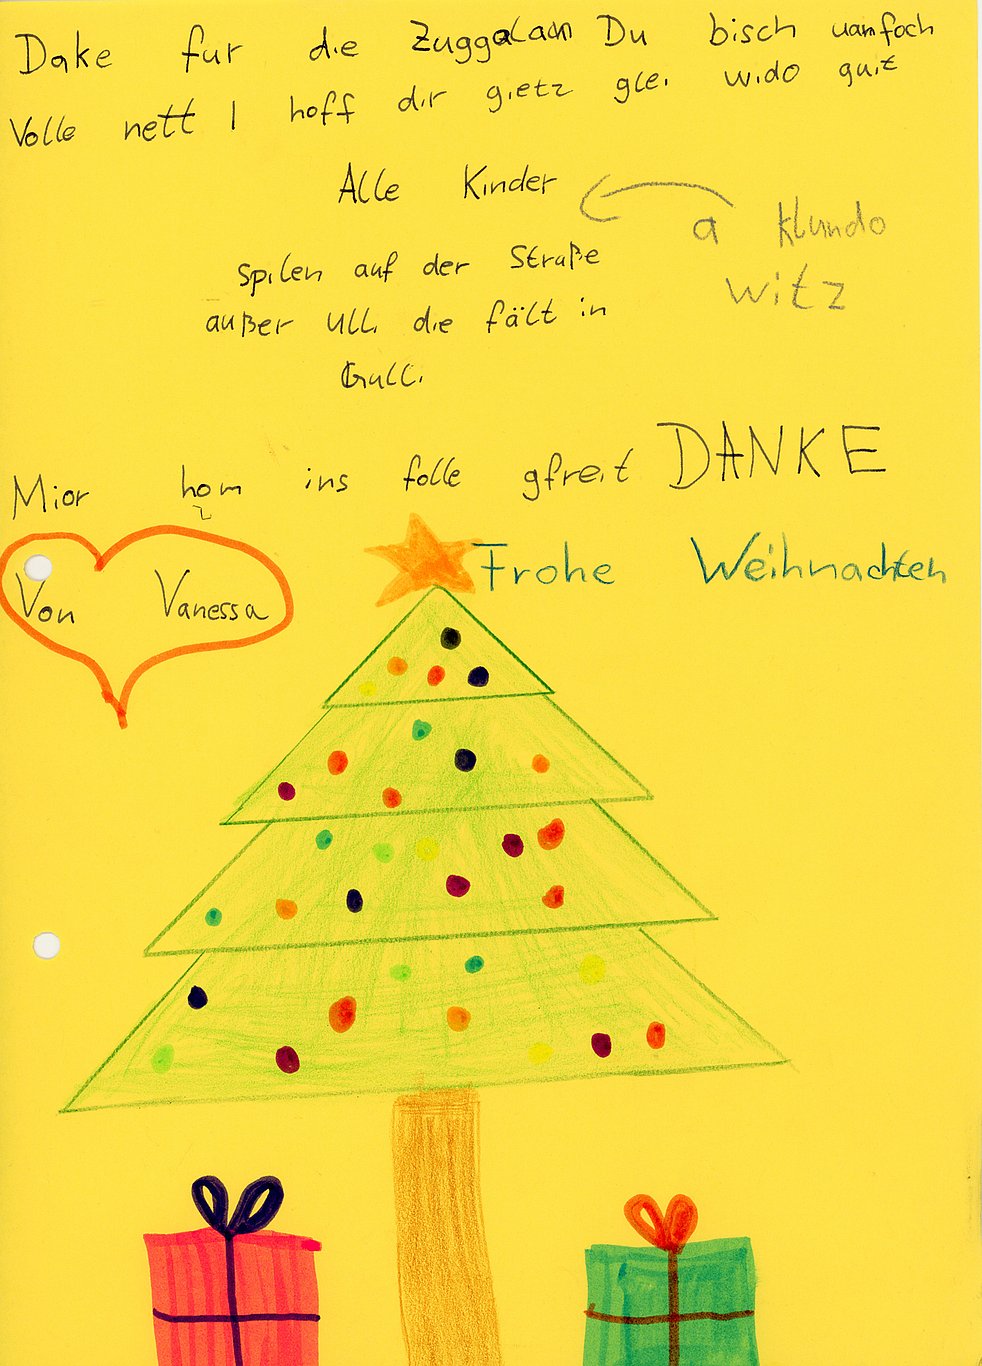 Dake fur die Zuggalan Du bisch uanfoch
Volle nett I hoff dir gietz glei wido guit
Alle Kinder
a klundo
witz
Spilen auf der Straße
außer Ulli die fält in
Gulli.
Mior hom ins folle gfreit DANKE
Frohe Weihnachten
Von Vanessa